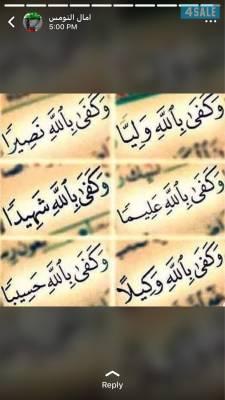 4SALE
امال النومس
5:00 PM
وَكَفَىٰ بِٱللَّهِ وَلِيًّا
وَكَفَىٰ بِٱللَّهِ نَصِيرًا
وَكَفَىٰ بِٱللَّهِ عَلِيمًا
وَكَفَىٰ بِٱللَّهِ شَهِيدًا
وَكَفَىٰ بِٱللَّهِ وَكِيلًا
وَكَفَىٰ بِٱللَّهِ حَسِيبًا
Reply